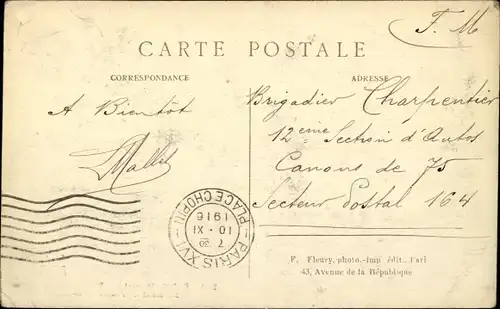 F. M
CARTE POSTALE
CORRESPONDANCE
ADRESSE
A Bientôt
Brigadier Charpentier
12eme Section d'Autos
Canons de 75
Secteur Postal 164
PARIS XVI
PLACE CHOPIN
7 30
10 - XI
1916
F. Fleury, photo.-imp édit., Pari
43, Avenue de la République